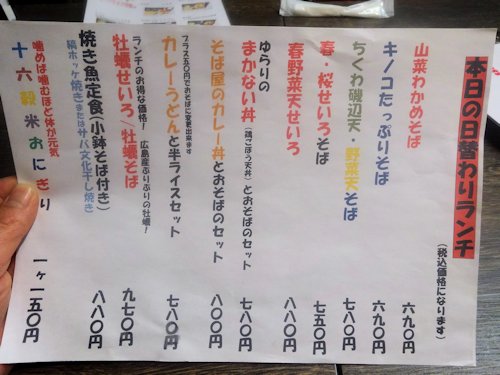 本日の日替わりランチ
(税込価格になります)
山菜わかめそば 六九〇円
キノコたっぷりそば 六九〇円
ちくわ磯辺天・野菜天そば 七八〇円
春・桜せいろそば 七五〇円
春野菜天せいろ 八八〇円
ゆらりの
まかない丼(鶏ごぼう天丼)とおそばのセット 七八〇円
そば屋のカレー丼とおそばのセット 八〇〇円
プラス五〇円でおそばに変更出来ます
カレーうどんと半ライスセット 七八〇円
ランチのお得な価格! 広島産ぷりぷりの牡蠣!
牡蠣せいろ/牡蠣そば 九七〇円
焼き魚定食(小鉢そば付き) 八八〇円
縞ホッケ焼きまたはサバ文化干し焼き
噛めば噛むほど体が元気
十六穀米おにぎり 一ヶ一五〇円